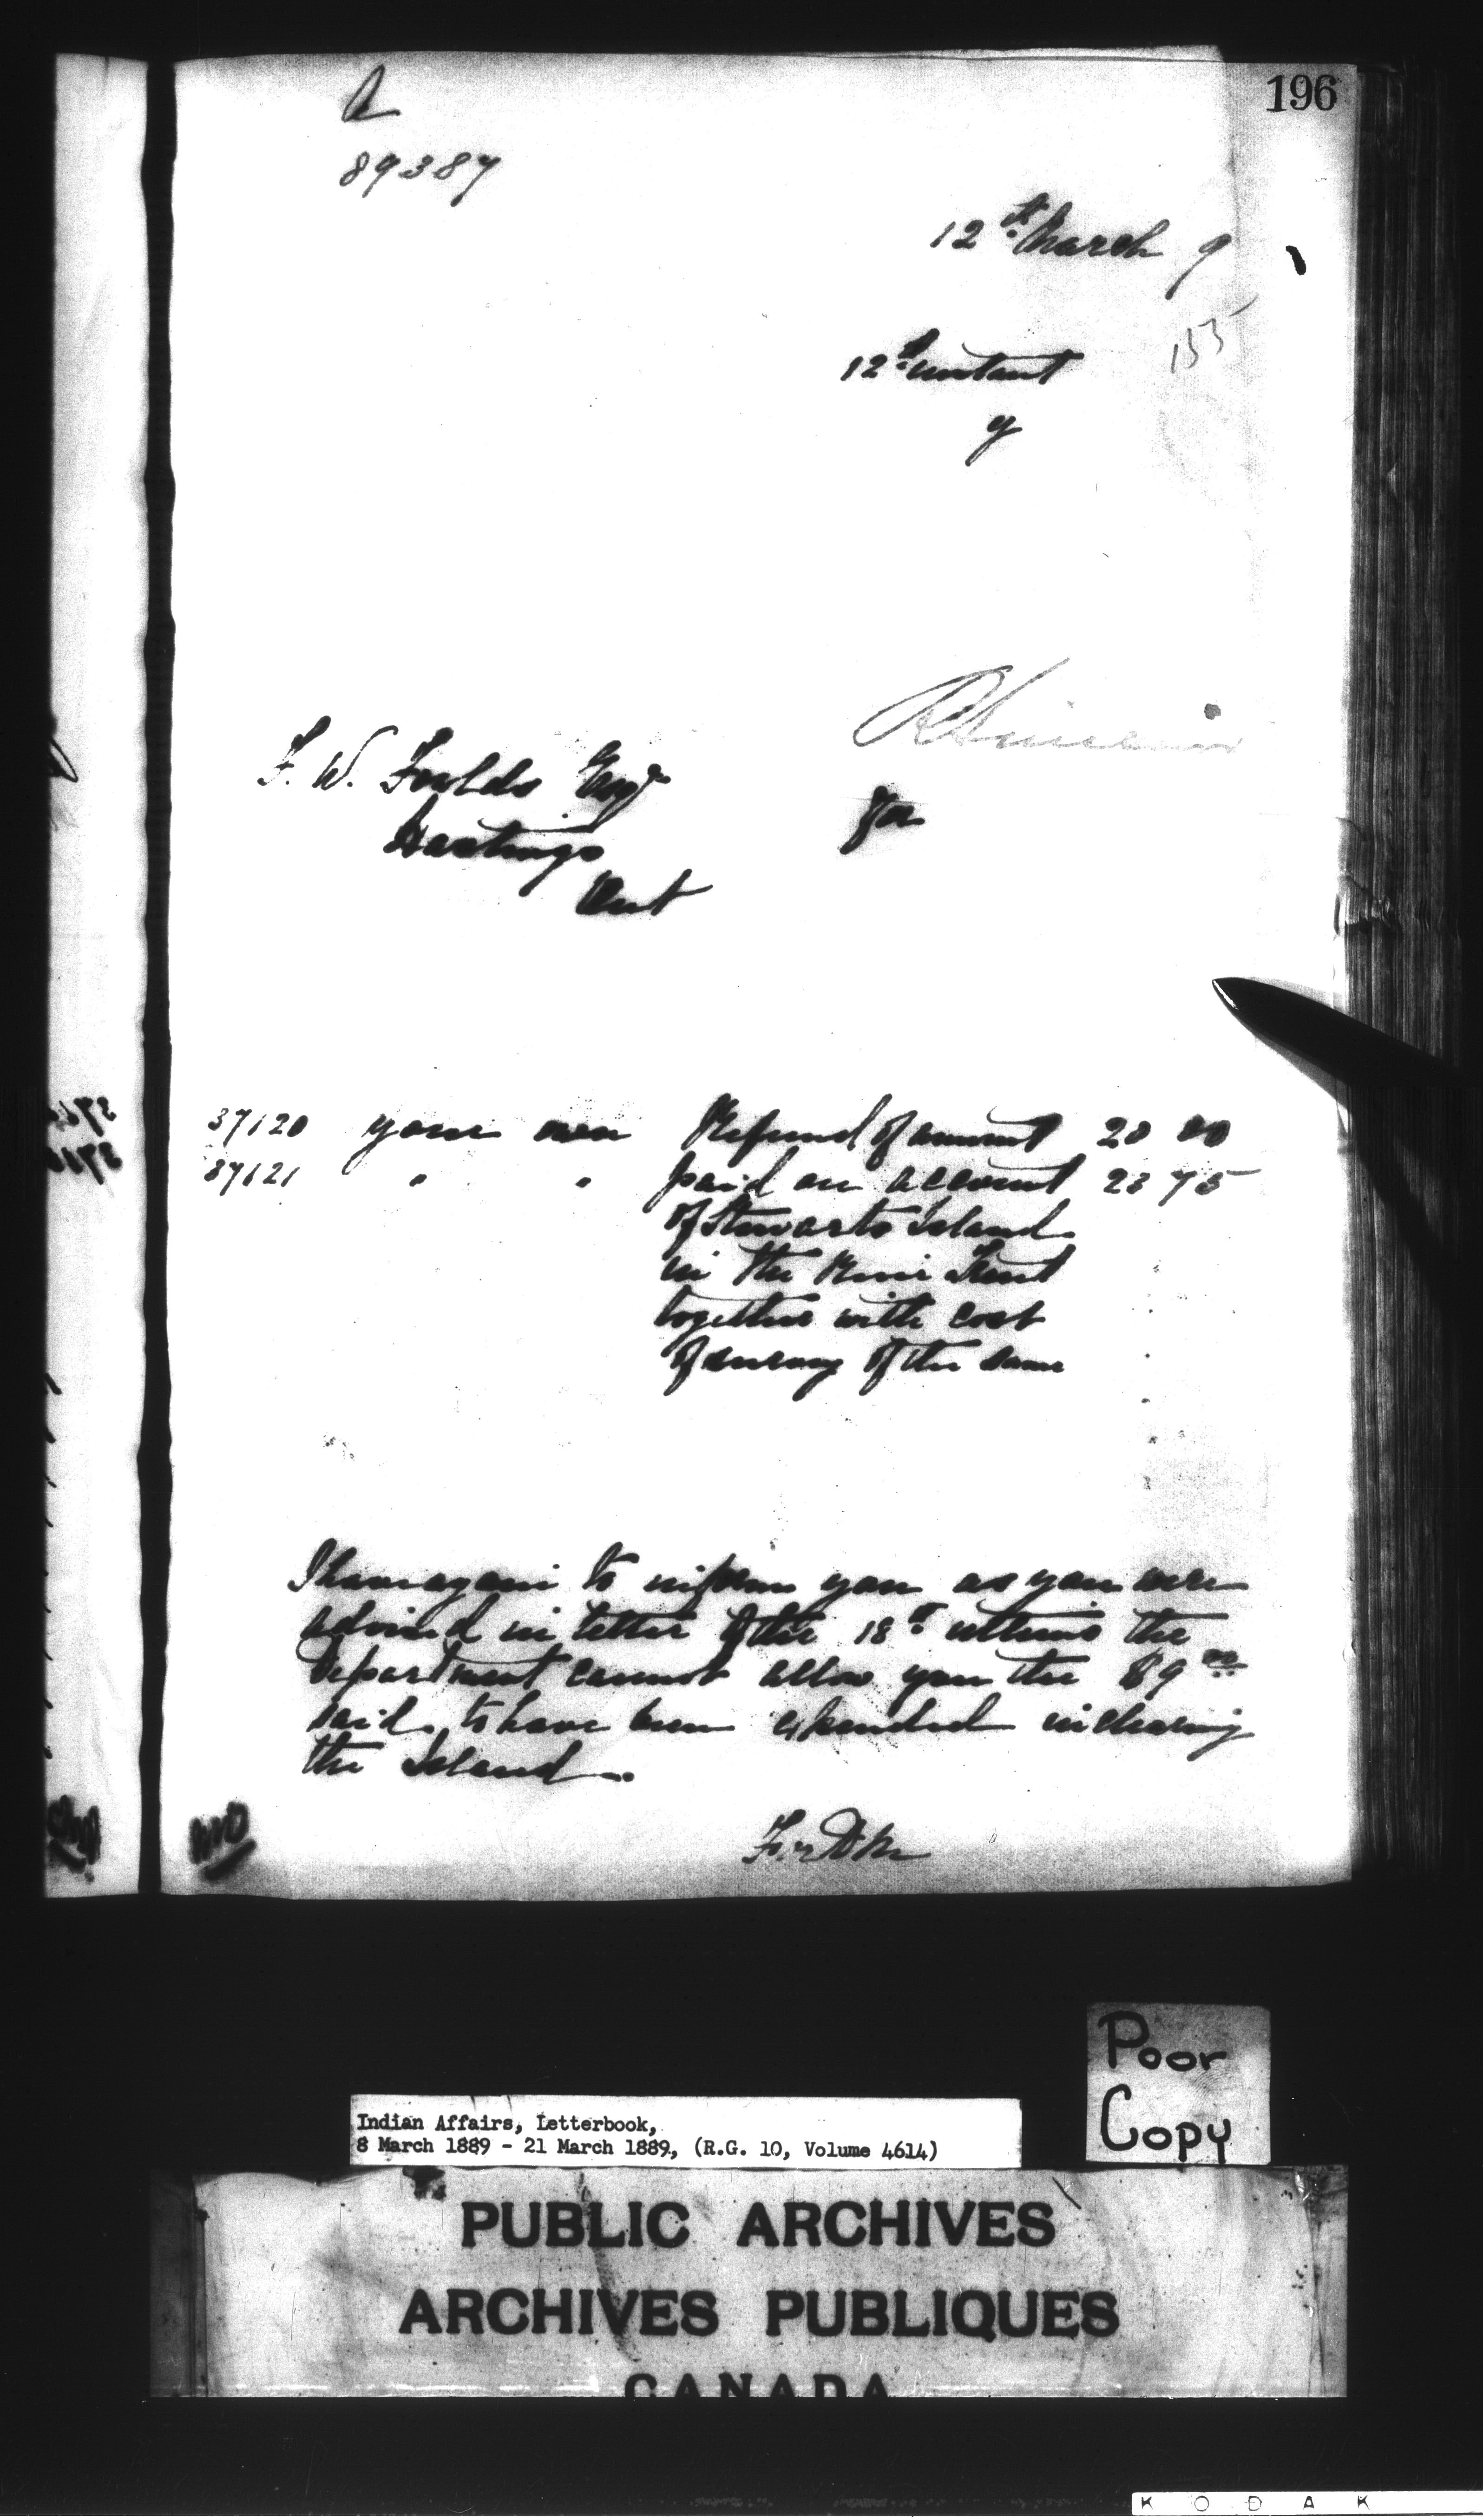 196
89387
12th March 9
155
12th instant
9
R Sinclair
F. W. Foulds Esqr
for
Hastings
Ont
37120 your own Refund of amount 20 00
37121 " " paid on account 23 75
of Stewarts Island
in the River Trent
together with cost
of survey of the same
I have again to inform you as you were
advised in letter of the 18th ultimo the
Department cannot allow you the 89 00
said to have been expended in clearing
the Island.
Poor
Copy
Indian Affairs, Letterbook,
8 March 1889 - 21 March 1889, (R.G. 10, Volume 4614)
PUBLIC ARCHIVES
ARCHIVES PUBLIQUES
CANADA
KODAK